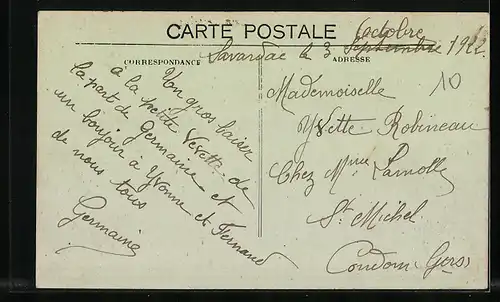 CARTE POSTALE
CORRESPONDANCE
ADRESSE
octobre
Lavardac le 3 Septembre 1922
10
Un gros baiser
à la petite Yvette de
la part de Germaine et
un bonjour à Yvonne et Fernand
de nous tous
Germaine
Mademoiselle
Yvette Robineau
Chez Mme Lamolle
St Michel
Condom Gers